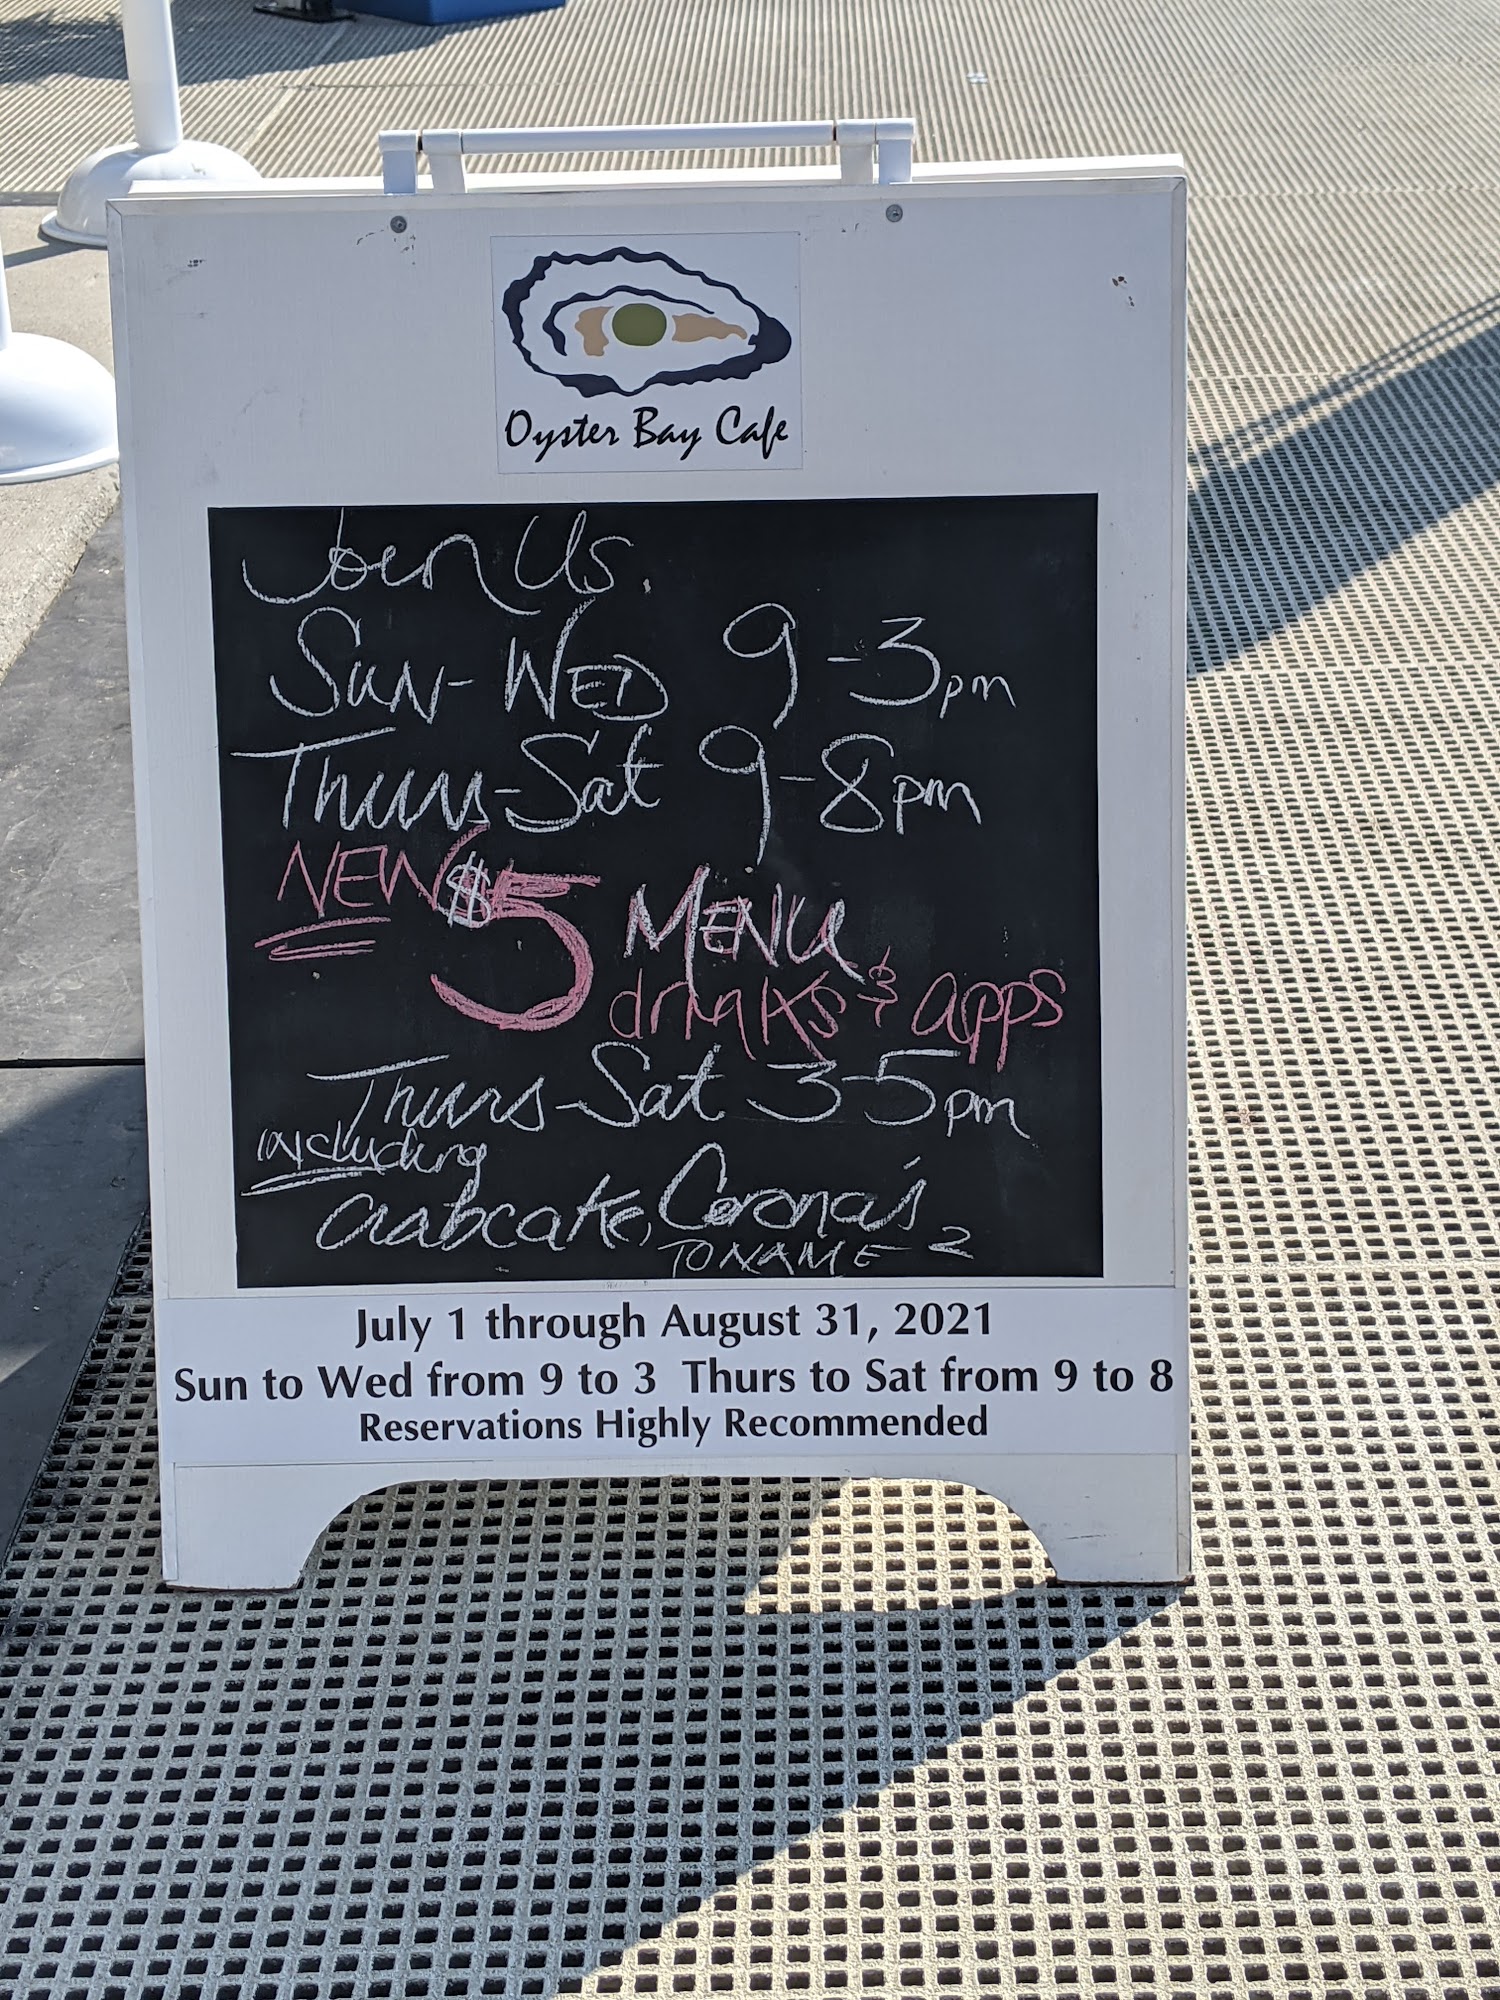 Oyster Bay Cafe
Join Us
Sun-WED 9-3pm
Thurs-Sat 9-8pm
NEW $5 MENU
drinks & apps
Thurs-Sat 3-5pm
including
Crabcake, Corona's
TO NAME 2
July 1 through August 31, 2021
Sun to Wed from 9 to 3 Thurs to Sat from 9 to 8
Reservations Highly Recommended